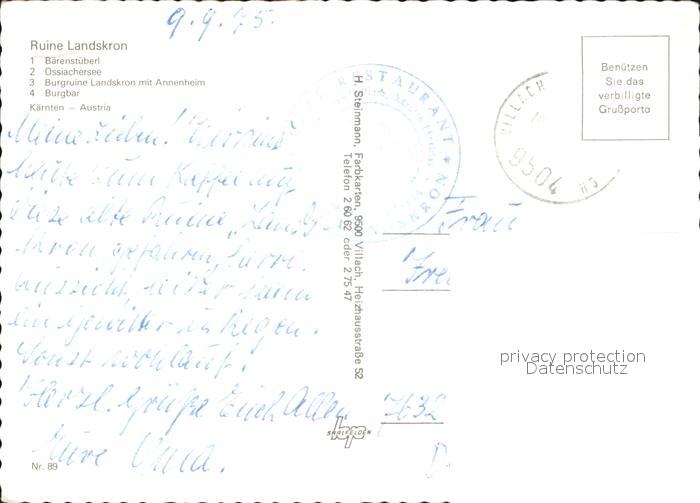 9.9.75.
Ruine Landskron
1 Bärenstüberl
2 Ossiachersee
3 Burgruine Landskron mit Annenheim
4 Burgbar
Kärnten — Austria
Meine Lieben!
heute zum Kaffee auf
diese alte Ruine "Lands-
kron gefahren, herrl.
Aussicht, leider kam
ein Gewitter u. Regen.
Sonst wohlauf.
Herzl. Grüße Euch Allen
Eure Oma.
Nr. 89
H. Steinmann, Farbkarten, 9500 Villach, Heizhausstraße 52
Telefon 2 60 62 oder 2 75 47
RESTAURANT
SKRON
VILLACH
9504
Benützen
Sie das
verbilligte
Grußporto
Frau
7632
D
SAALFELDEN
privacy protection
Datenschutz